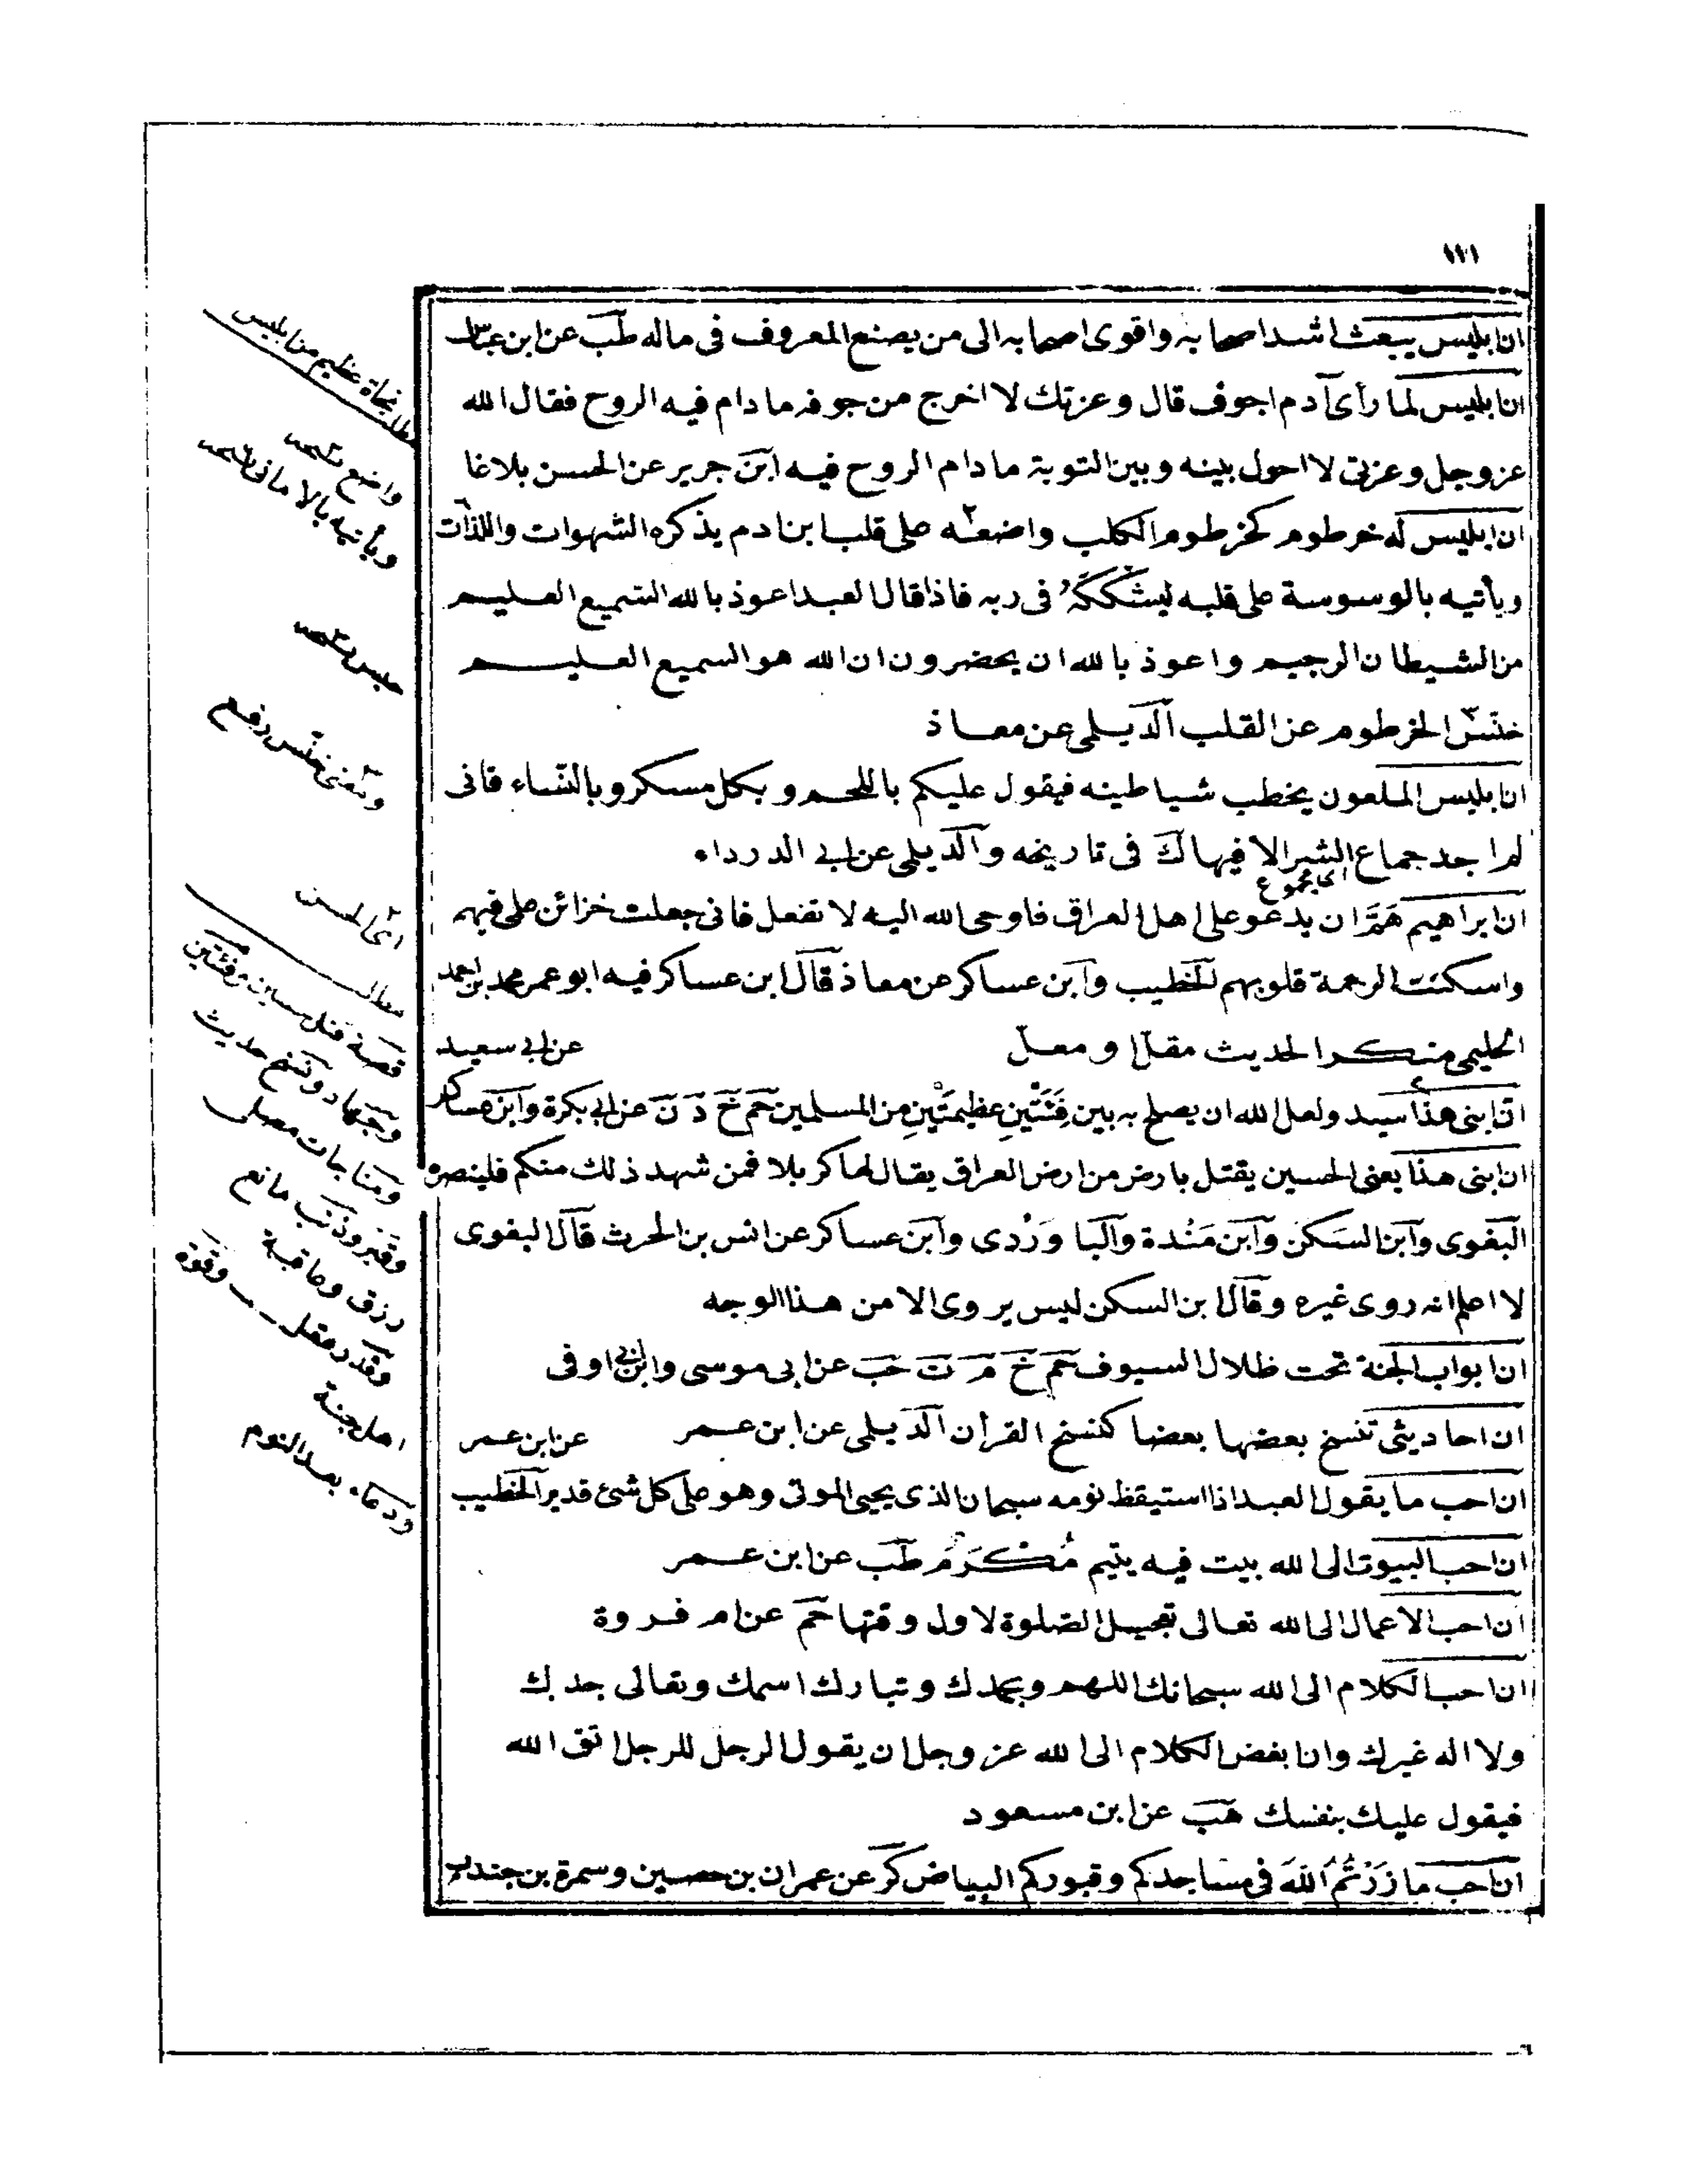 ١٢١
ان ابليس يبعث اشد اصحابه واقوى اصحابه الى من يصنع المعروف فى ماله طب عن ابن عباس
ان ابليس لما رأى آدم اجوف قال وعزتك لا اخرج من جوفه ما دام فيه الروح فقال الله
عز وجل وعزتى لا احول بينه وبين التوبة ما دام الروح فيه ابن جرير عن الحسن بلاغا
ان ابليس له خرطوم كخرطوم الكلب واضعه على قلب ابن ادم يذكره الشهوات واللذات
ويأتيه بالوسوسة على قلبه ليشككه فى ربه فاذا قال العبد اعوذ بالله السميع العليم
من الشيطان الرجيم واعوذ بالله ان يحضرون ان الله هو السميع العليم
خنس الخرطوم عن القلب الديلمى عن معاذ
ان ابليس الملعون يخطب شياطينه فيقول عليكم باللحم وبكل مسكر وبالنساء فانى
لم اجد جماع الشر الا فيها ك فى تاريخه والديلمى عن ابى الدرداء
اى مجموع
ان ابراهيم هَمَّ ان يدعو على اهل العراق فاوحى الله اليه لا تفعل فانى جعلت خزائن على فيهم
واسكنت الرحمة قلوبهم الخطيب وابن عساكر عن معاذ قال ابن عساكر فيه ابو عمر محمد بن احمد
الحليمى منكر الحديث مقل ومعل عن ابى سعيد
ان ابنى هذا سيد ولعل الله ان يصلح به بين فئتين عظيمتين من المسلمين حم خ د ن عن ابى بكرة وابن عساكر
ان ابنى هذا يعنى الحسين يقتل بارض من ارض العراق يقال لها كربلا فمن شهد ذلك منكم فلينصره
البغوى وابن السكن وابن مَنْدة والباوَرْدى وابن عساكر عن انس بن الحرث قال البغوى
لا اعلم انه روى غيره وقال ابن السكن ليس يروى الا من هذا الوجه
ان ابواب الجنة تحت ظلال السيوف حم خ م ت حب عن ابى موسى وابن ابى اوفى
ان احاديثى تنسخ بعضها بعضا كنسخ القرأن الديلمى عن ابن عمر عن ابن عمر
ان احب ما يقول العبد اذا استيقظ نومه سبحان الذى يحيى الموتى وهو على كل شئ قدير الخطيب
ان احب البيوت الى الله بيت فيه يتيم مُكْرَمٌ طب عن ابن عمر
ان احب الاعمال الى الله تعالى تعجيل الصلوة لاول وقتها حم عن ام فروة
ان احب الكلام الى الله سبحانك اللهم وبحمدك وتبارك اسمك وتعالى جدك
ولا اله غيرك وان ابغض الكلام الى الله عز وجل ان يقول الرجل للرجل اتق الله
فيقول عليك بنفسك هب عن ابن مسعود
ان احب ما زُرْتُمُ اللهَ فى مساجدكم وقبوركم البياض كر عن عمران بن حصين وسمرة بن جندب
نجاة عظيم من ابليس
واضع نسخه
ويأتيه بالامانى نسخه
نسخه
ومعنى خنس رفع
اى الحسن
مطلب
قصة فئتين
وجهاد ونسخ حديث
ومناجات
وقبر وذنب مانع
رزق وعاقبة
وقدر عقل وقوة
اهل جنة
ودعاء بعد النوم